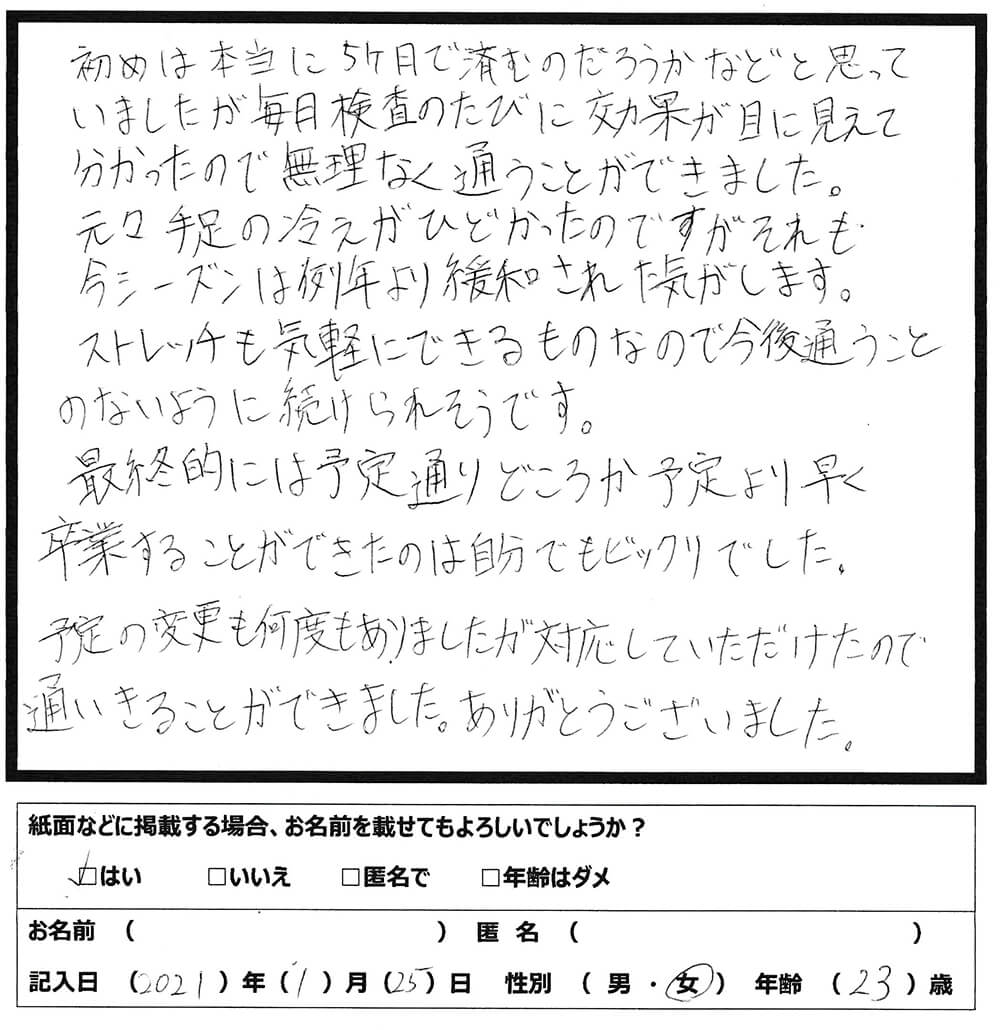 初めは本当に5ヶ月で済むのだろうかなどと思って
いましたが毎日検査のたびに効果が目に見えて
分かったので無理なく通うことができました。
元々手足の冷えがひどかったのですがそれも
今シーズンは例年より緩和された気がします。
ストレッチも気軽にできるものなので今後通うこと
のないように続けられそうです。
最終的には予定通りどころか予定より早く
卒業することができたのは自分でもビックリでした。
予定の変更も何度もありましたが対応していただけたので
通いきることができました。ありがとうございました。
紙面などに掲載する場合、お名前を載せてもよろしいでしょうか？
☑はい □いいえ □匿名で □年齢はダメ
お名前 （ ） 匿 名 （ ）
記入日 （2021）年（1）月（25）日 性別 （ 男 ・ 女 ） 年齢 （ 23 ）歳